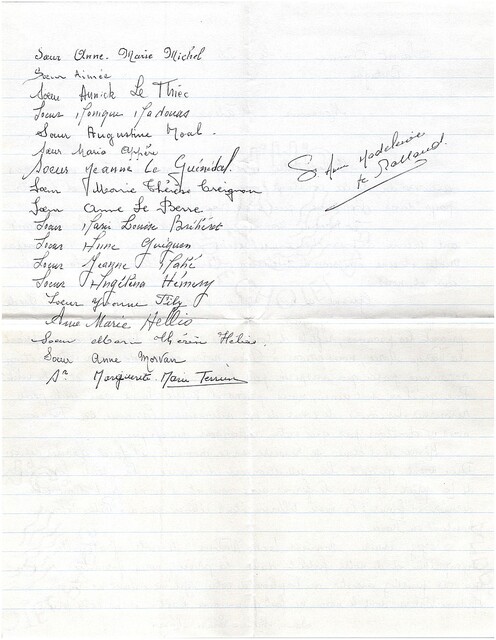 Soeur Anne-Marie Michel
Soeur Aimée
Soeur Annick Le Thiec
Soeur Monique Madouas
Soeur Augustine Moal.
Soeur Maria Appéré
Soeur Jeanne Le Guénédal.
Soeur Marie Thérèse Creignou
Soeur Anne Le Berre
Soeur Marie Louise Bréhéret
Soeur Anne Guiguen
Soeur Jeanne Mahé
Soeur Angélina Hémery
Soeur Yvonne Tily
Anne Marie Hellio
Soeur Marie Thérèse Hélias.
Soeur Anne Morvan
Sr Marguerite-Marie Terrien
Sr Anne Madeleine
Rolland.